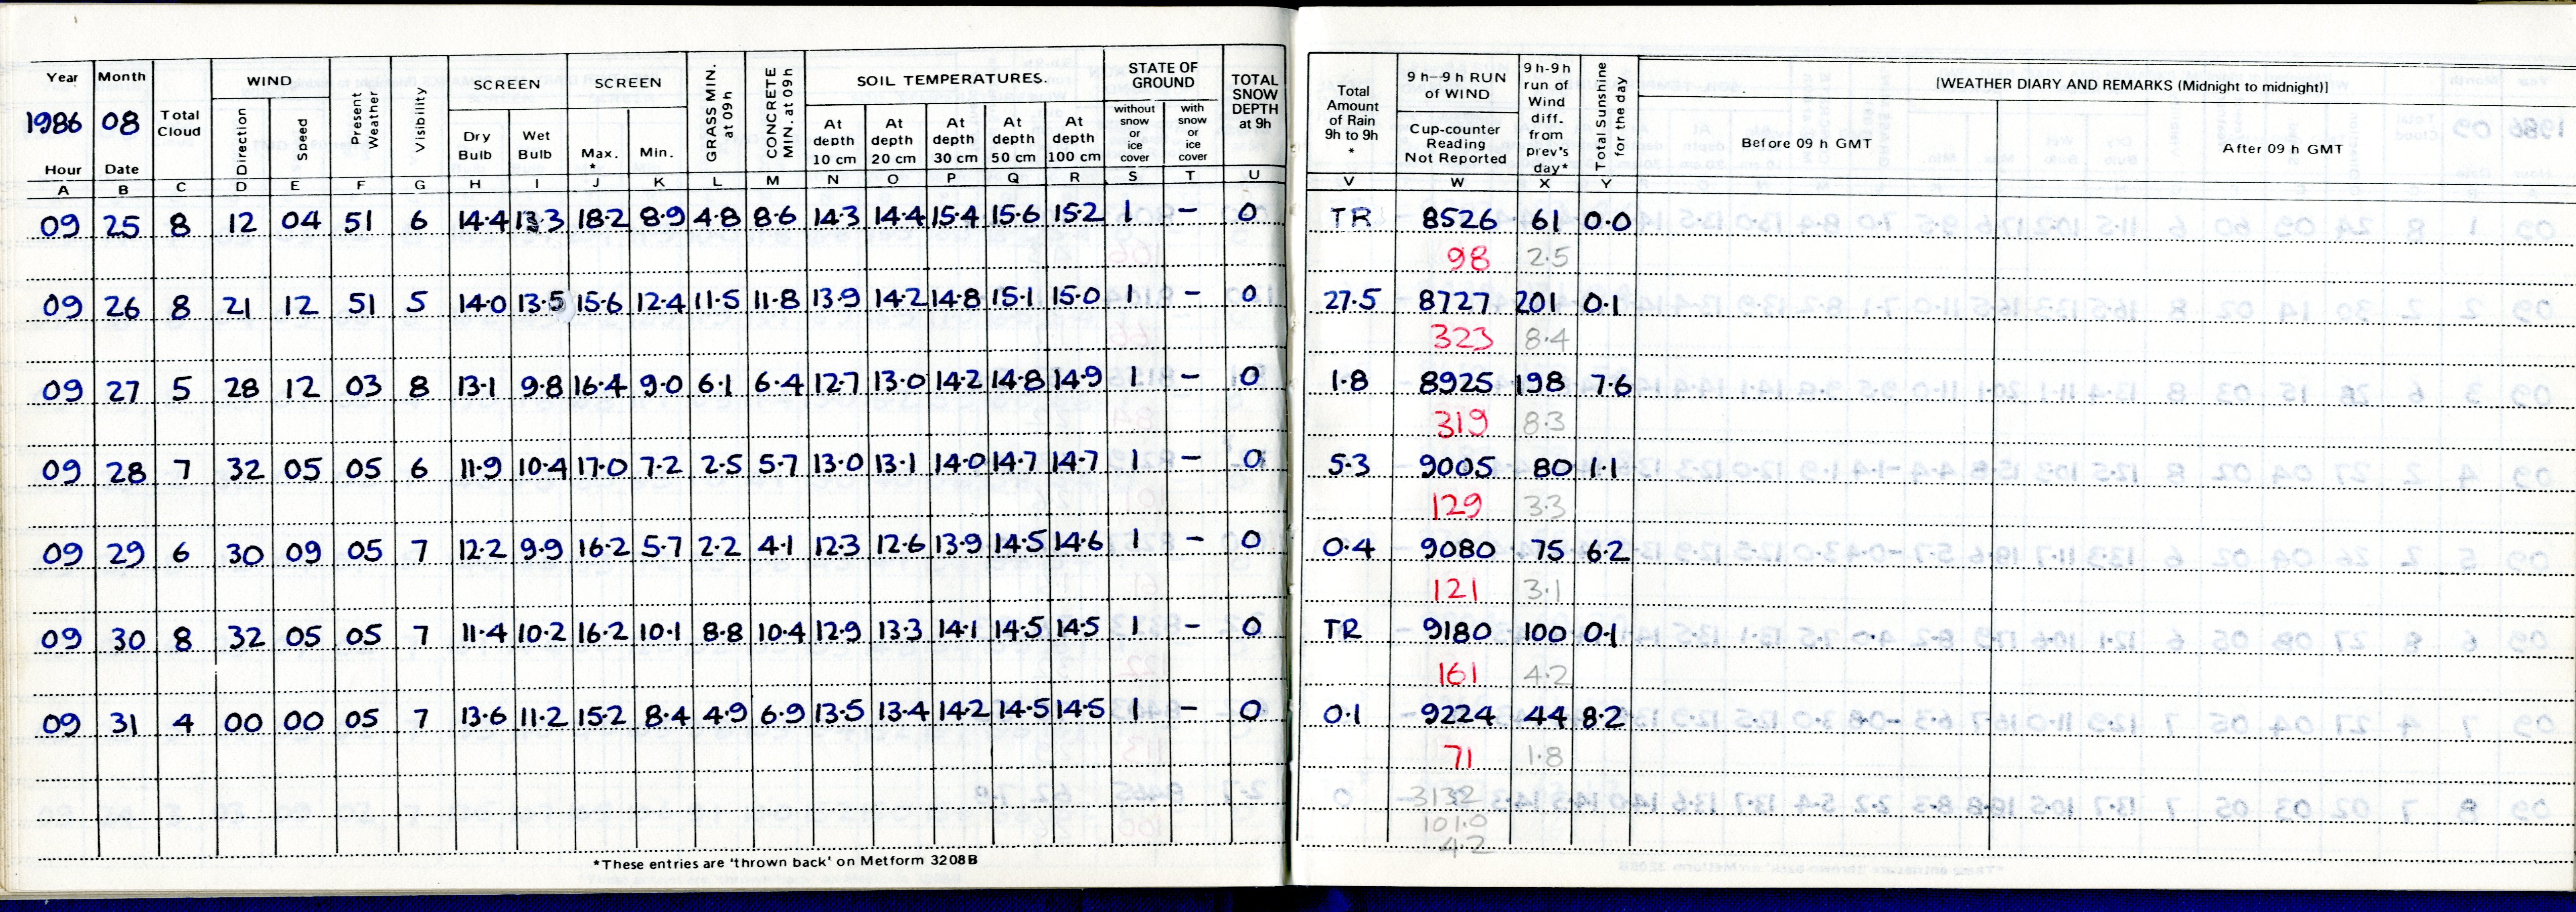 Year Month WIND SCREEN SCREEN SOIL TEMPERATURES. STATE OF GROUND
1986 08
Hour Date
Total Cloud
Direction
Speed
Present Weather
Visibility
Dry Bulb
Wet Bulb
Max. *
Min.
GRASS MIN. at 09h
CONCRETE MIN. at 09h
At depth 10 cm
At depth 20 cm
At depth 30 cm
At depth 50 cm
At depth 100 cm
without snow or ice cover
with snow or ice cover
TOTAL SNOW DEPTH at 9h
A B C D E F G H I J K L M N O P Q R S T U
09 25 8 12 04 51 6 14.4 13.3 18.2 8.9 4.8 8.6 14.3 14.4 15.4 15.6 15.2 1 – 0
09 26 8 21 12 51 5 14.0 13.5 15.6 12.4 11.5 11.8 13.9 14.2 14.8 15.1 15.0 1 – 0
09 27 5 28 12 03 8 13.1 9.8 16.4 9.0 6.1 6.4 12.7 13.0 14.2 14.8 14.9 1 – 0
09 28 7 32 05 05 6 11.9 10.4 17.0 7.2 2.5 5.7 13.0 13.1 14.0 14.7 14.7 1 – 0
09 29 6 30 09 05 7 12.2 9.9 16.2 5.7 2.2 4.1 12.3 12.6 13.9 14.5 14.6 1 – 0
09 30 8 32 05 05 7 11.4 10.2 16.2 10.1 8.8 10.4 12.9 13.3 14.1 14.5 14.5 1 – 0
09 31 4 00 00 05 7 13.6 11.2 15.2 8.4 4.9 6.9 13.5 13.4 14.2 14.5 14.5 1 – 0
*These entries are 'thrown back' on Metform 3208B
Total Amount of Rain 9h to 9h *
9 h–9 h RUN of WIND
Cup-counter Reading Not Reported
9 h-9h run of Wind diff. from prev's day*
Total Sunshine for the day
[WEATHER DIARY AND REMARKS (Midnight to midnight)]
Before 09 h GMT
After 09 h GMT
V W X Y
TR 8526 61 0.0
98 2.5
27.5 8727 201 0.1
323 8.4
1.8 8925 198 7.6
319 8.3
5.3 9005 80 1.1
129 3.3
0.4 9080 75 6.2
121 3.1
TR 9180 100 0.1
161 4.2
0.1 9224 44 8.2
71 1.8
3132
101.0
4.2